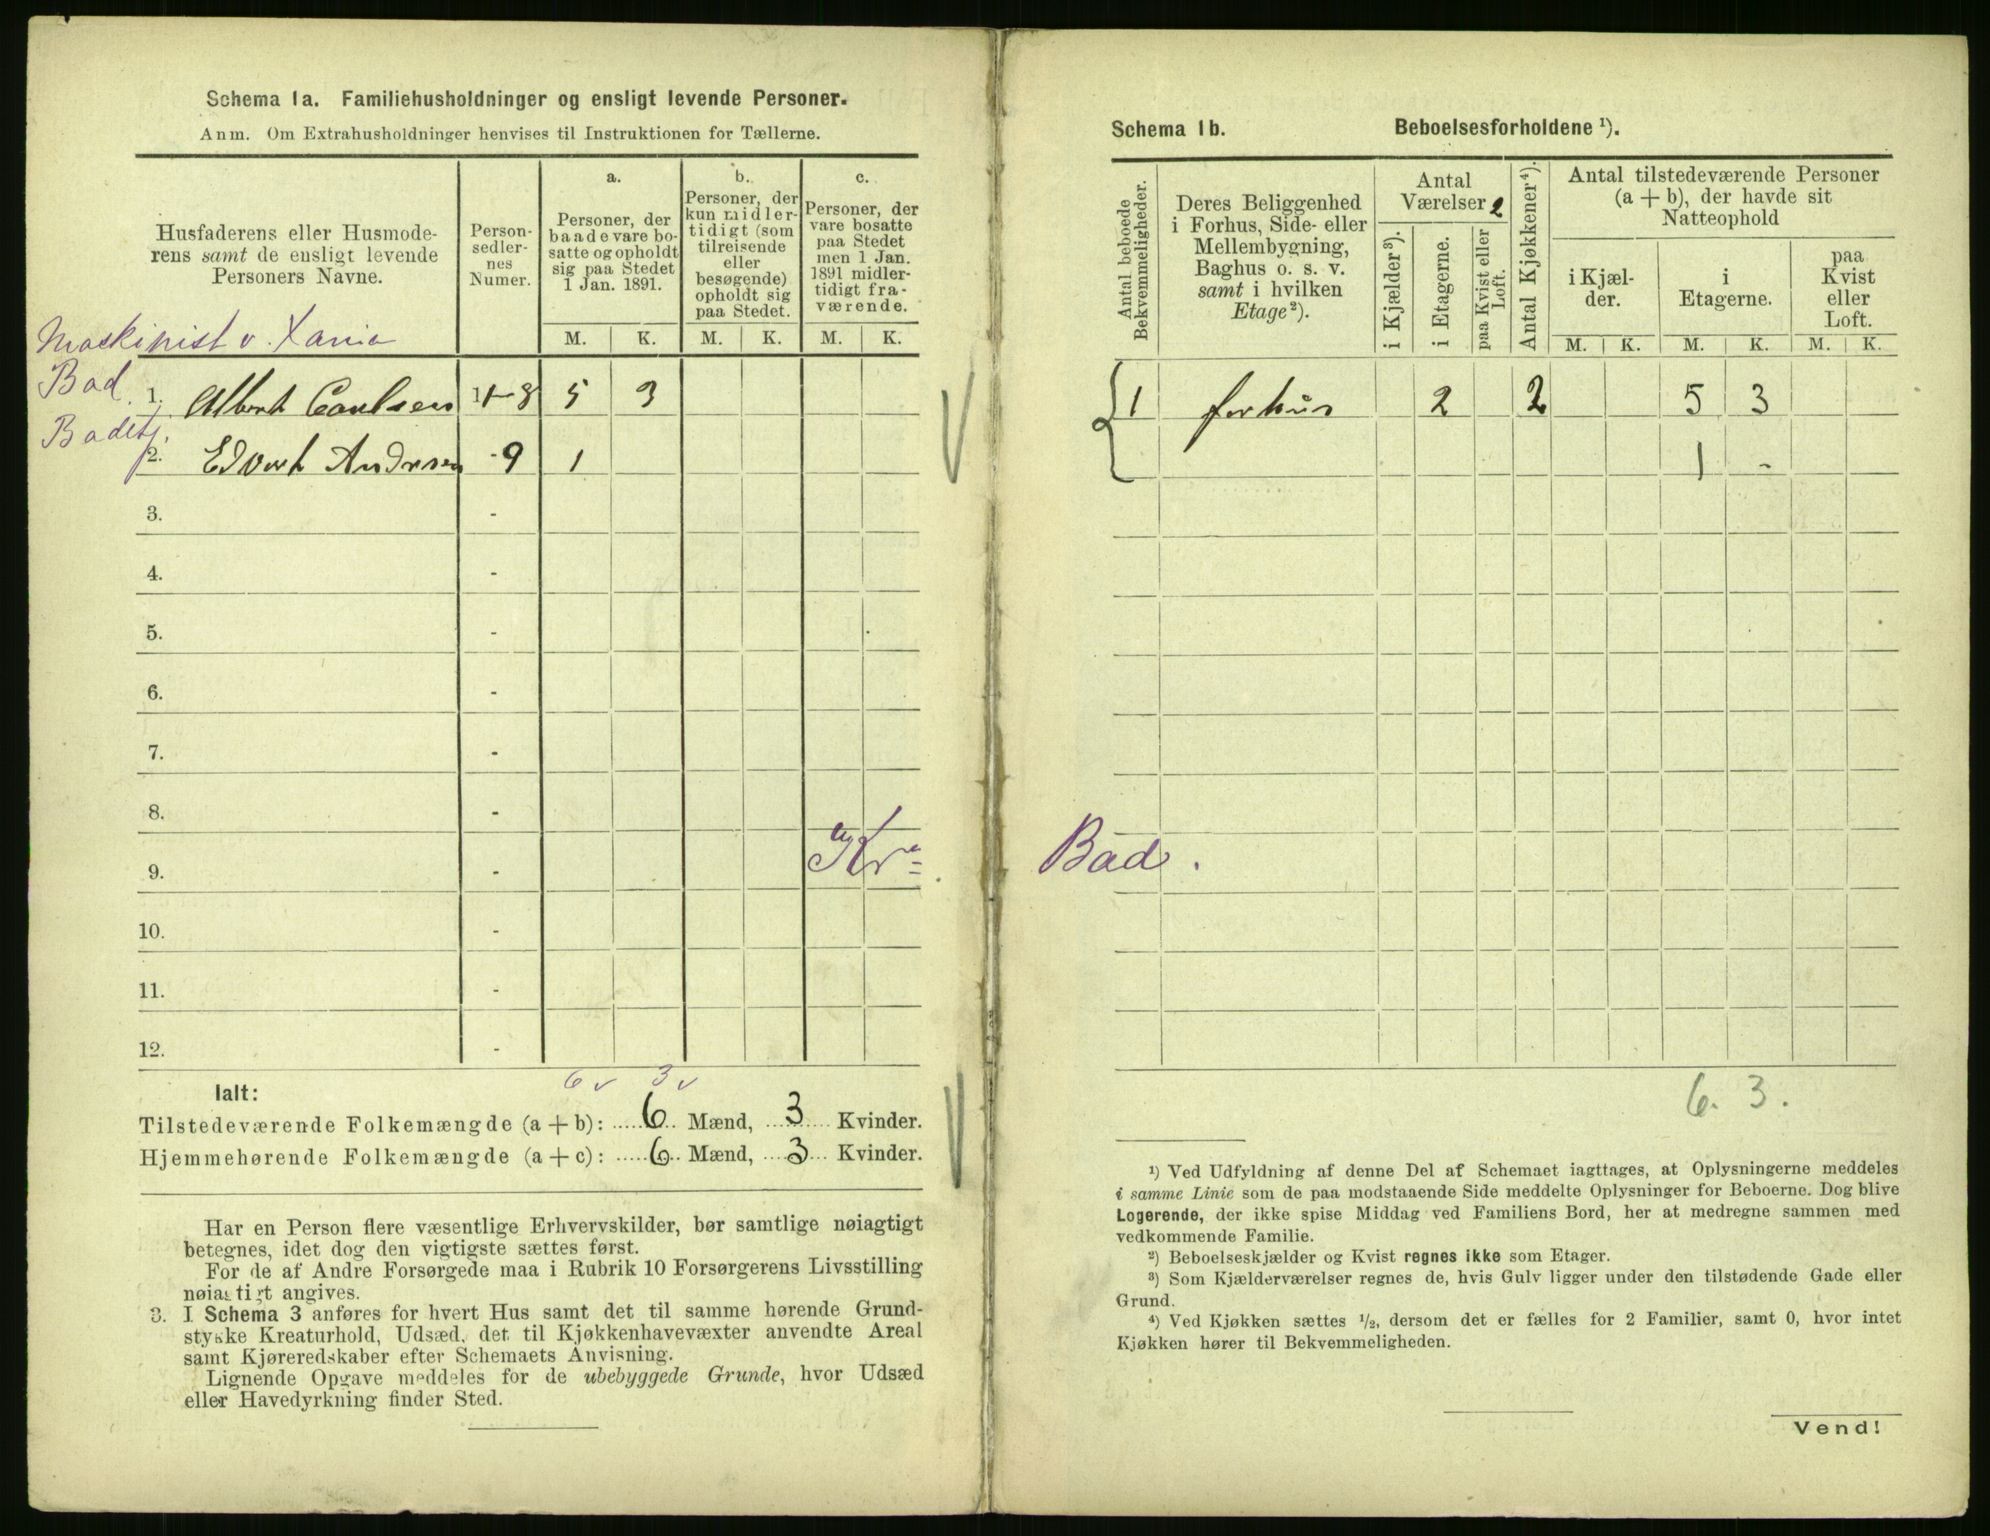 Schema 1a. Familiehusholdninger og ensligt levende Personer.
Anm. Om Extrahusholdninger henvises til Instruktionen for Tællerne.
Husfaderens eller Husmode-
rens samt de ensligt levende
Personers Navne.
Person-
sedler-
nes
Numer.
a.
Personer, der
baade vare bo-
satte og opholdt
sig paa Stedet
1 Jan. 1891.
b.
Personer, der
kun midler-
tidigt (som
tilreisende
eller
besøgende)
opholdt sig
paa Stedet.
c.
Personer, der
vare bosatte
paa Stedet
men 1 Jan.
1891 midler-
tidigt fra-
værende.
M. K. M. K. M. K.
Maskinist v. Xania
Bad
1. Albert Carlsen 1-8 5 3
Badetj.
2. Edvert Andresen -9 1
3. -
4. -
5. -
6. -
7. -
8. -
9. -
10. -
11. -
12. -
Ialt:
6 v 3 v
Tilstedeværende Folkemængde (a + b): 6 Mænd, 3 Kvinder.
Hjemmehørende Folkemængde (a + c): 6 Mænd, 3 Kvinder.
Har en Person flere væsentlige Erhvervskilder, bør samtlige nøiagtigt
betegnes, idet dog den vigtigste sættes først.
For de af Andre Forsørgede maa i Rubrik 10 Forsørgerens Livsstilling
nøiagtigt angives.
3. I Schema 3 anføres for hvert Hus samt det til samme hørende Grund-
stykke Kreaturhold, Udsæd, det til Kjøkkenhavevæxter anvendte Areal
samt Kjøreredskaber efter Schemaets Anvisning.
Lignende Opgave meddeles for de ubebyggede Grunde, hvor Udsæd
eller Havedyrkning finder Sted.
Schema 1b. Beboelsesforholdene ¹).
Antal beboede
Bekvemmeligheder.
Deres Beliggenhed
i Forhus, Side- eller
Mellembygning,
Baghus o. s. v.
samt i hvilken
Etage²).
Antal
Værelser 2
i Kjælder³).
i Etagerne.
paa Kvist eller
Loft.
Antal Kjøkkener⁴).
Antal tilstedeværende Personer
(a + b), der havde sit
Natteophold
i Kjæl-
der.
i
Etagerne.
paa
Kvist
eller
Loft.
M. K. M. K. M. K.
1 forhus 2 2 5 3
1 -
Kra Bad.
6. 3.
¹) Ved Udfyldning af denne Del af Schemaet iagttages, at Oplysningerne meddeles
i samme Linie som de paa modstaaende Side meddelte Oplysninger for Beboerne. Dog blive
Logerende, der ikke spise Middag ved Familiens Bord, her at medregne sammen med
vedkommende Familie.
²) Beboelseskjælder og Kvist regnes ikke som Etager.
³) Som Kjælderværelser regnes de, hvis Gulv ligger under den tilstødende Gade eller
Grund.
⁴) Ved Kjøkken sættes ½, dersom det er fælles for 2 Familier, samt 0, hvor intet
Kjøkken hører til Bekvemmeligheden.
Vend!